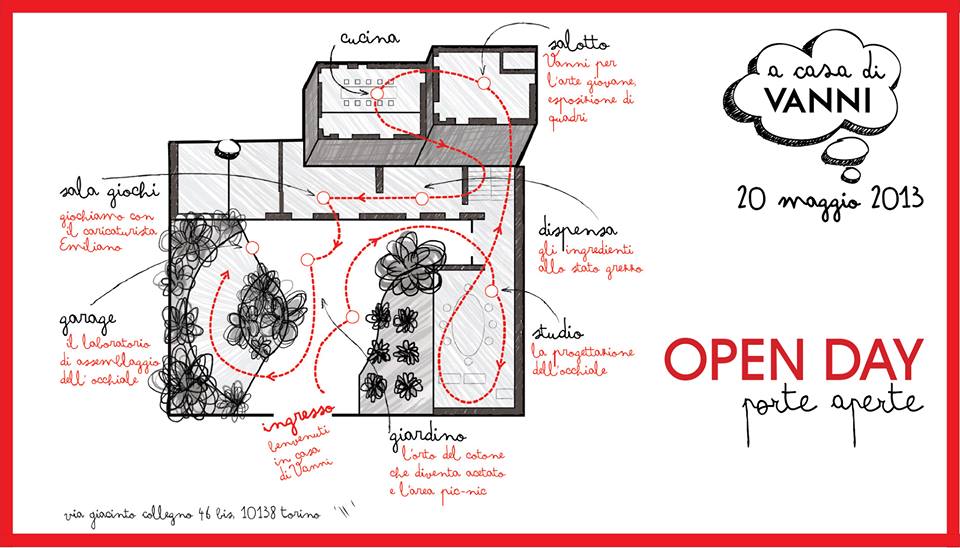 cucina
salotto
Vanni per
l'arte giovane,
esposizione di
quadri
a casa di
VANNI
20 maggio 2013
sala giochi
giochiamo con
il caricaturista
Emiliano
dispensa
gli ingredienti
allo stato grezzo
garage
il laboratorio
di assemblaggio
dell'occhiale
studio
la progettazione
dell'occhiale
OPEN DAY
porte aperte
ingresso
benvenuti
in casa
di Vanni
giardino
l'orto del cotone
che diventa acetato
e l'area pic-nic
via giacinto collegno 46 bis, 10138 torino